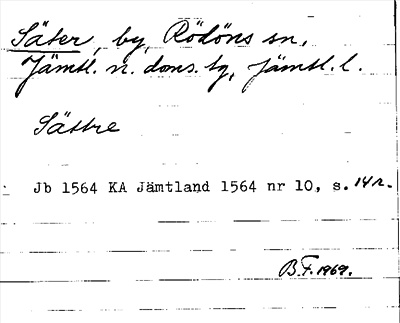 Säter, by, Rödöns sn,
Jämtl. n. doms. tg, Jämtl. l.
Sättre
Jb 1564 KA Jämtland 1564 nr 10, s. 14 r.
B.F. 1969.